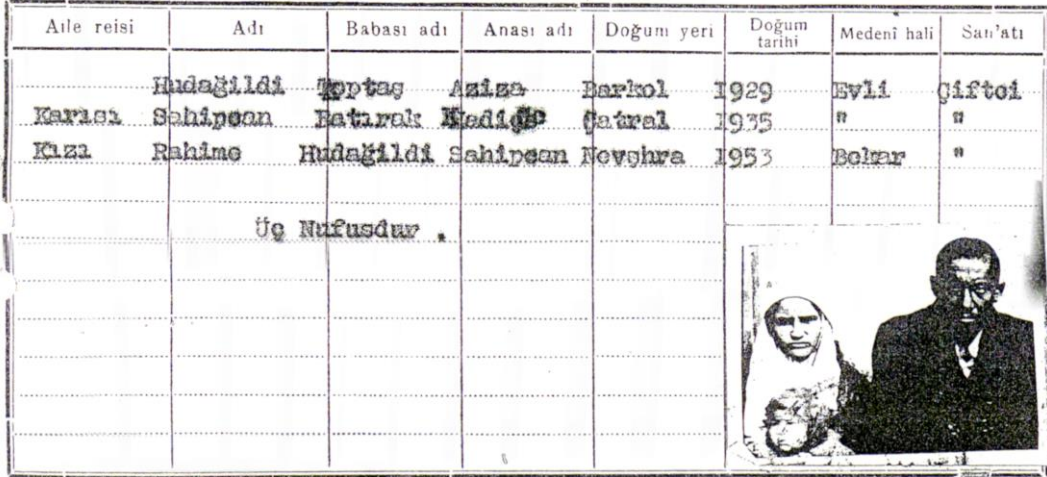 Aile reisi Adı Babası adı Anası adı Doğum yeri Doğum tarihi Medenî hali San'atı
Hudağildi Toptaş Aziza Barkol 1929 Evli Çiftçi
Karısı Sahipcan Batırak Çatral 1935 " "
Kızı Rahime Hudağildi Sahipcan Novşhra 1953 Bekar "
Üç Nufusdur .